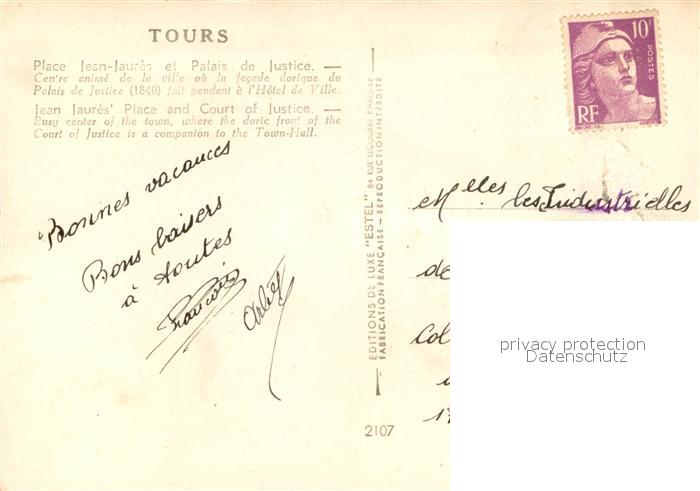 TOURS
Place Jean-Jaurès et Palais de Justice. —
Centre animé de la ville où la façade dorique du
Palais de Justice (1840) fait pendant à l'Hôtel de Ville.
Jean Jaurès' Place and Court of Justice. —
Busy center of the town, where the doric front of the
Court of Justice is a companion to the Town-Hall.
Bonnes vacances
Bons baisers
à toutes
EDITIONS DE LUXE "ESTEL" 84 RUE
FABRICATION FRANÇAISE - REPRODUCTION INTERDITE
2107
10F
POSTES
RF
Melles les Industrielles
de
Col
17
privacy protection
Datenschutz